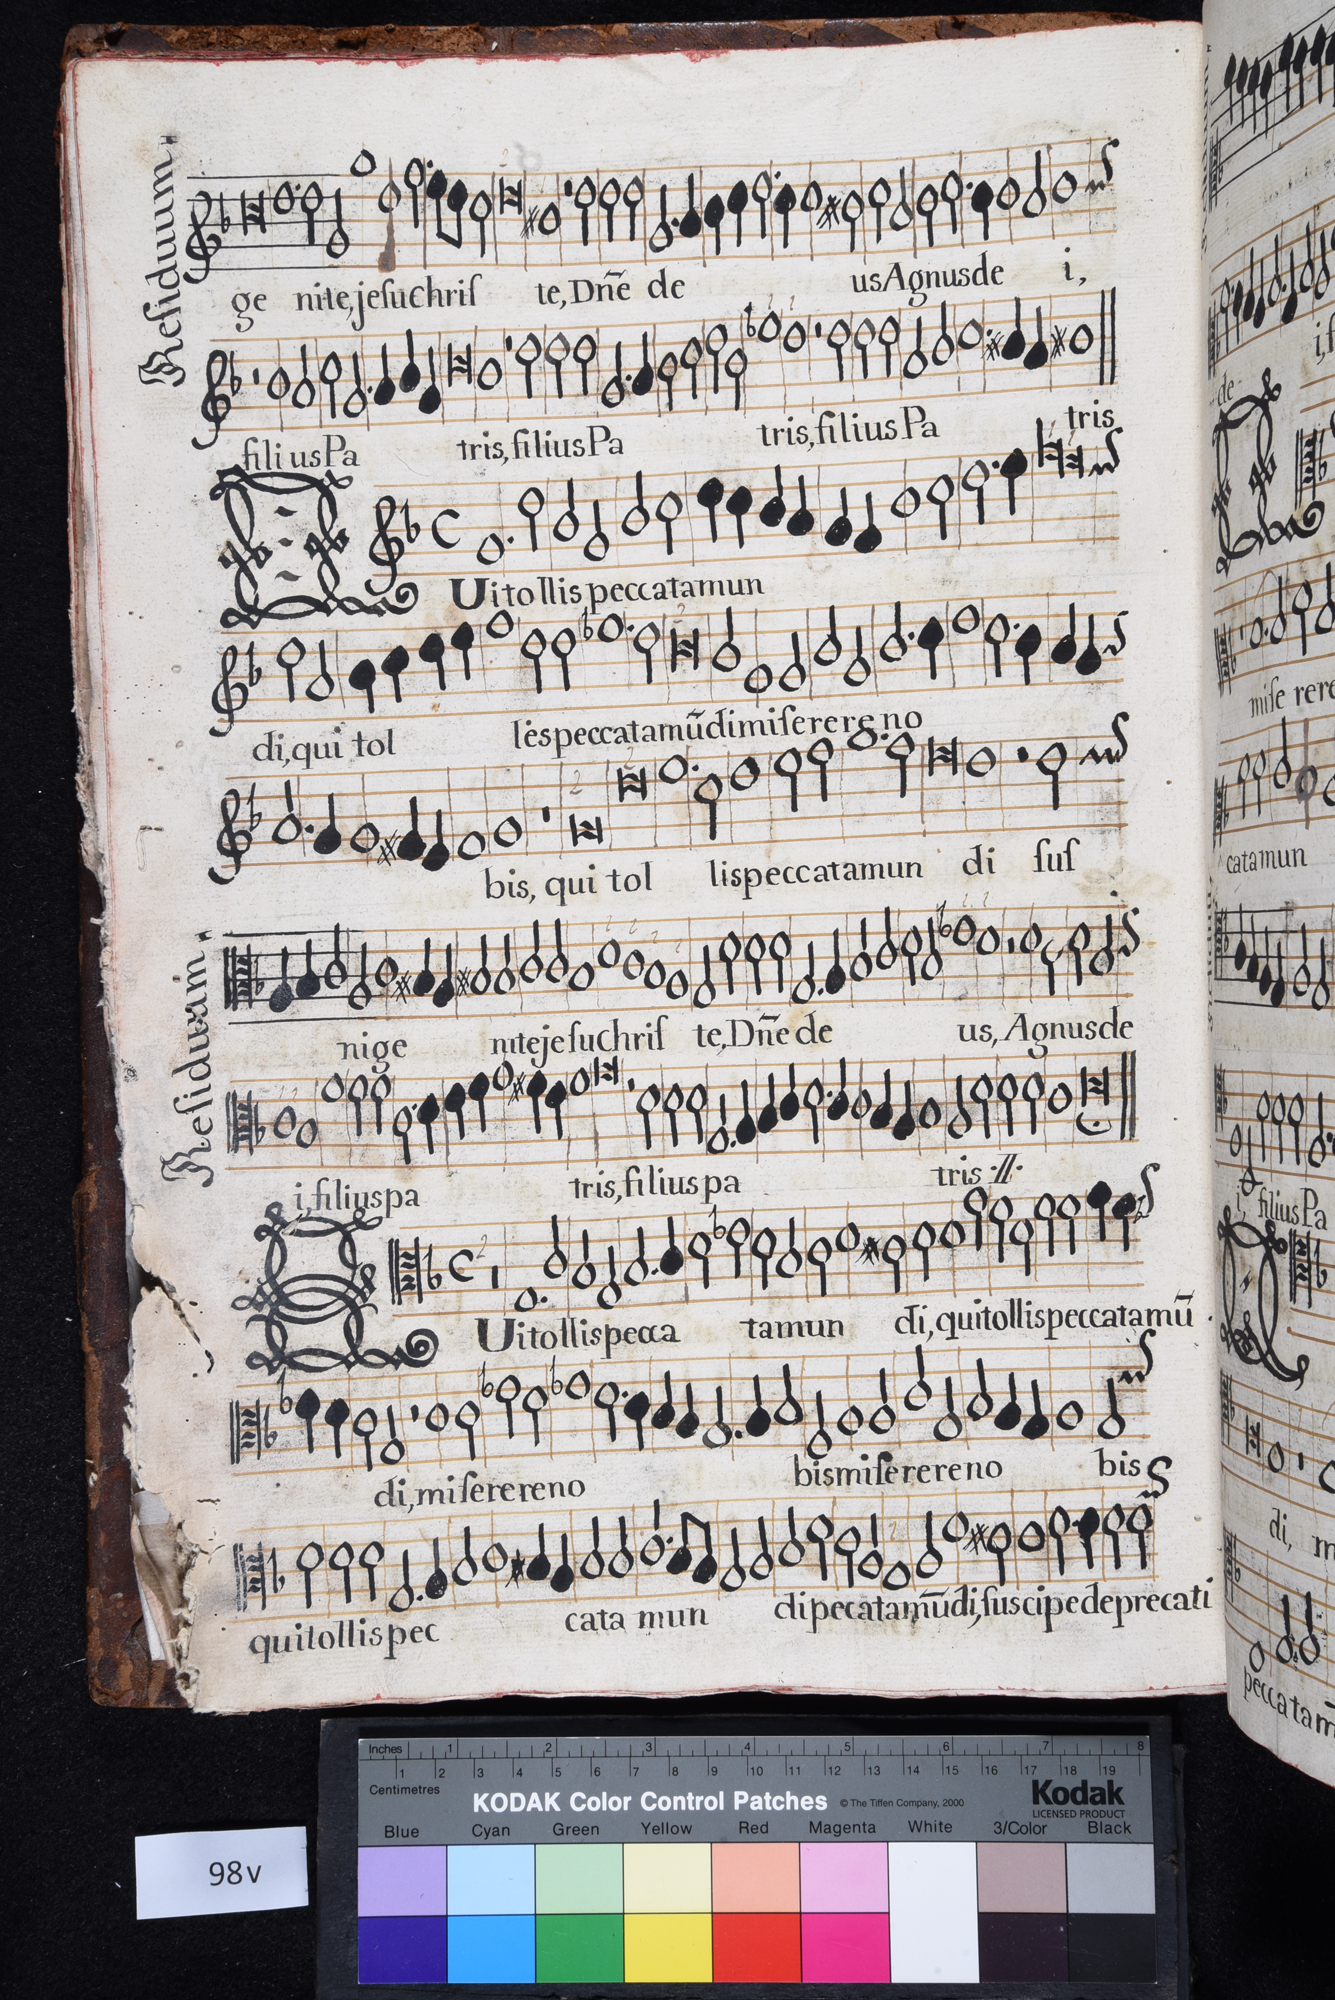 Residuum.
ge nite, jesu Chris te, Dñe de us Agnus de i,
filius Pa tris, filius Pa tris, filius Pa tris
QUi tollis peccata mun
di, qui tol les peccata mũdi miserere no
bis, qui tol lis peccata mun di sus
Residuum.
ni ge nite jesu Chris te, Dñe de us, Agnus de
i, filius pa tris, filius pa tris .II.
QUi tollis pecca ta mun di, qui tollis peccata mũ
di, miserere no bis miserere no bis
qui tollis pec cata mun di pecata mũdi, suscipe deprecati
de
mise rere
cata mun
i, filius Pa
di, m
peccatam
98v
Inches 1 2 3 4 5 6 7 8
Centimetres 1 2 3 4 5 6 7 8 9 10 11 12 13 14 15 16 17 18 19
KODAK Color Control Patches © The Tiffen Company, 2000 Kodak
LICENSED PRODUCT
Blue Cyan Green Yellow Red Magenta White 3/Color Black